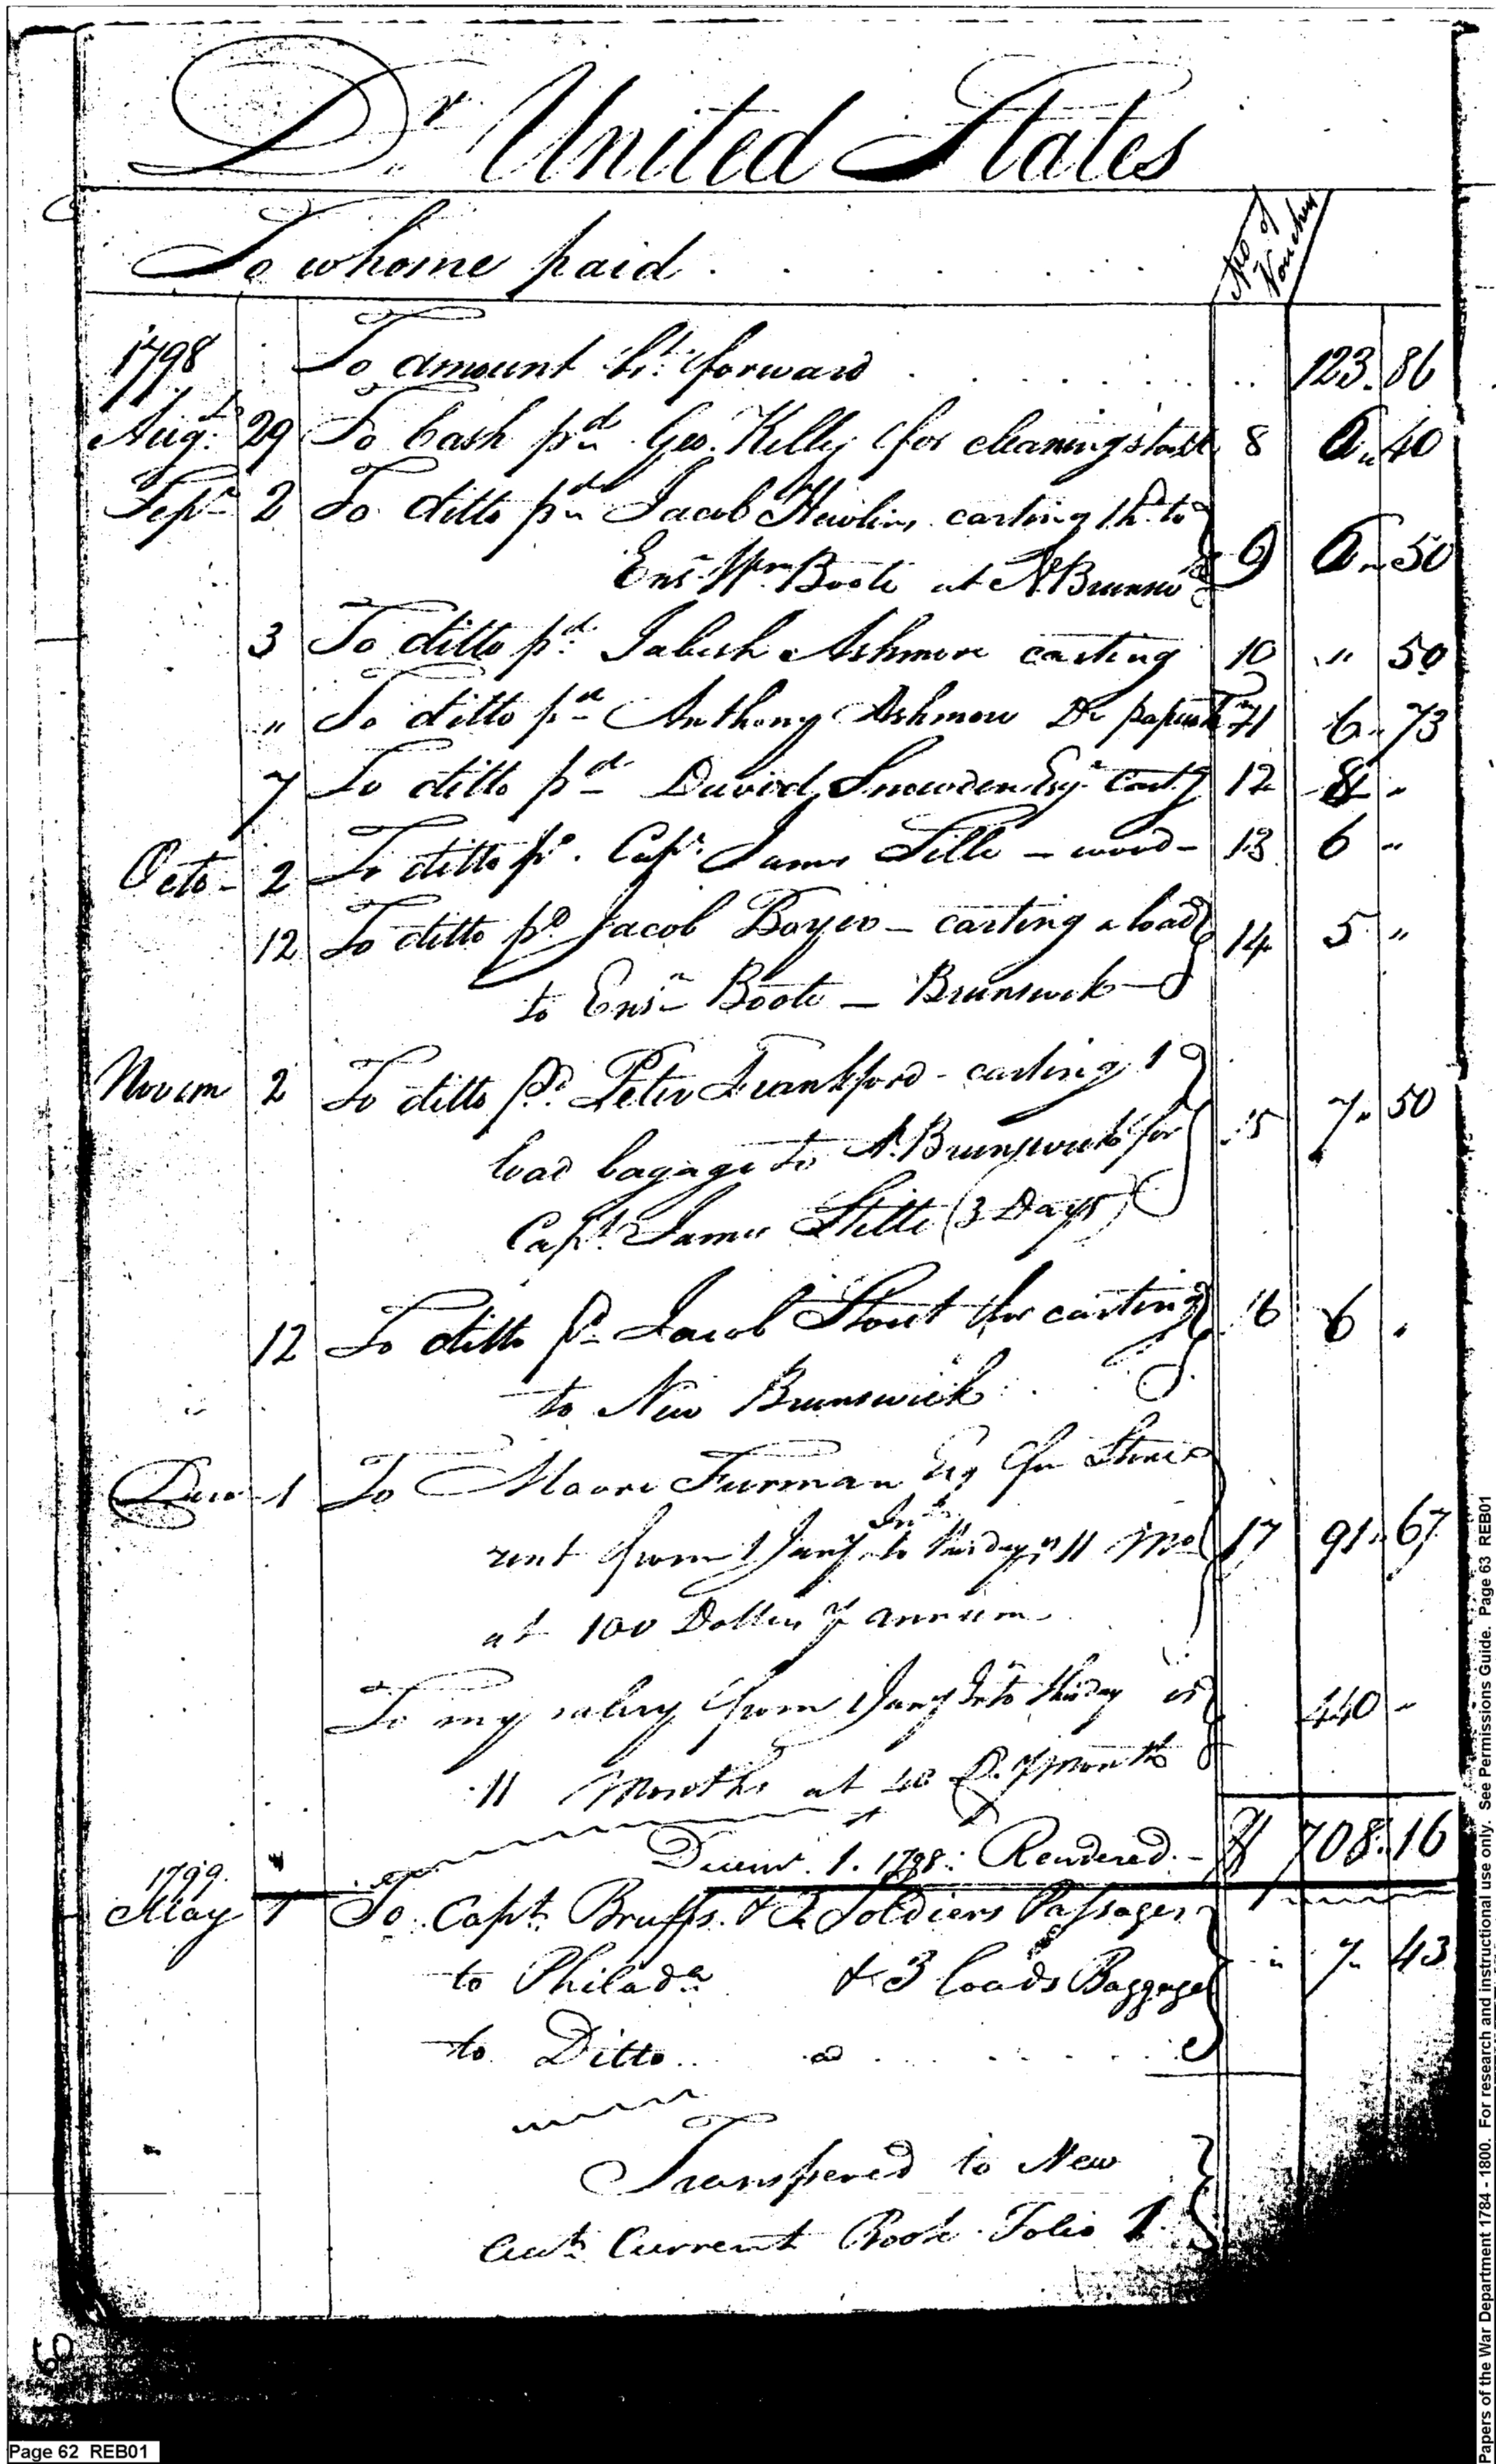 Dr United States
To whome paid
No of Voucher
1798 To amount bt. forward 123. 86
Augt. 29 To Cash pd Geo. Kelly for cleaning 8 0 40
Sepr 2 To ditto pd Jacob carting 1 to
Ensn Wm Boote at N. Brunsw 9 0 50
3 To ditto pd. Jabesh Ashmore carting 10 " 50
" To ditto pd Anthony Ashmore Do 11 6 73
7 To ditto pd David Snowden Esqr Cartg 12 8 "
Octo- 2 To ditto pd. Capt. James Stille - wood - 13 6 "
12 To ditto pd Jacob Boyer - carting a load 14 5 "
to Ensn Boote - Brunswick
Novem 2 To ditto pd. Peter Frankford - carting 1
load bagage to N. Brunswick for 15 7 " 50
Capt. James Stille (3 Days)
12 To ditto pd Jacob Stout for carting 16 6 "
to New Brunswick
Decr 1 To Moore Furman Esq for Store
rent from 1 Jany Inst. to this day is 11 Mo 17 91 " 67
at 100 Dollars pr annum
To my salary from 1 Jany to this day is 440 "
11 Months at 40 D. pr Month
Decemr. 1. 1798: Rendered. - $ 708. 16
1799.
May 1 To Capt. Bruffs & 2 Soldiers Passages
to Philada & 3 loads Baggage " 7 " 43
to Ditto
Transfered to New
acct. Current Book Folio 1.
Page 62 REB01
Papers of the War Department 1784 - 1800. For research and instructional use only. See Permissions Guide. Page 63 REB01